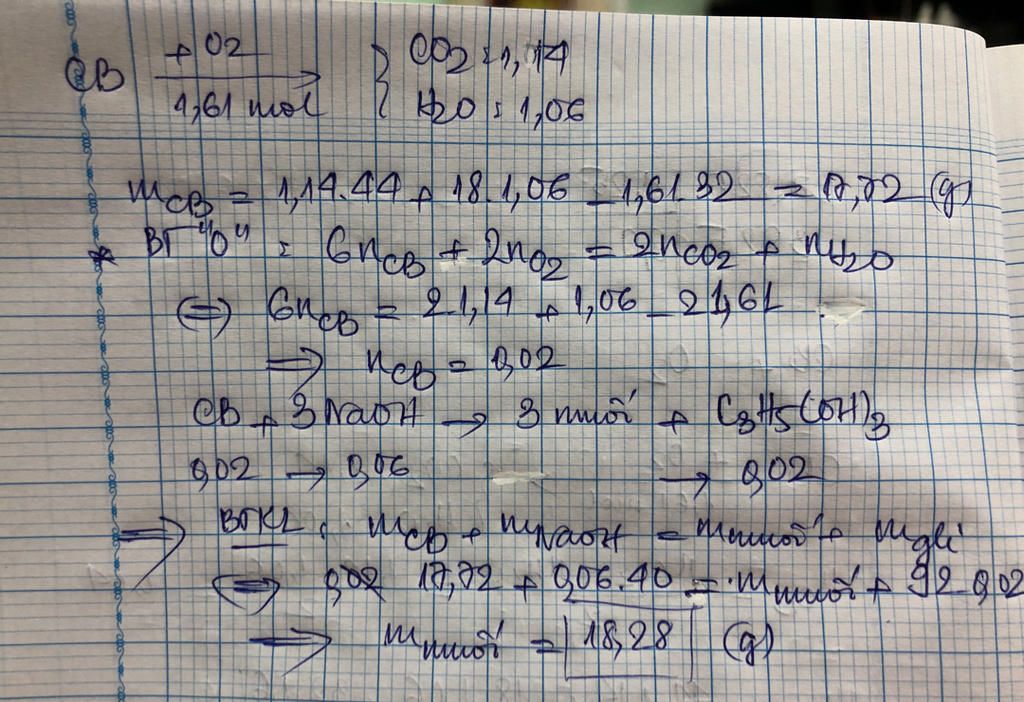 + O2
CB → } CO2 : 1,14
1,61 mol H2O : 1,06
mCB = 1,14.44 + 18.1,06 - 1,61 32 = 17,72 (g)
* BT "O" : 6nCB + 2nO2 = 2nCO2 + nH2O
(=) 6nCB = 2 1,14 + 1,06 - 2 1,61
=> nCB = 0,02
CB + 3 NaOH → 3 muối + C3H5(OH)3
0,02 → 0,06 → 0,02
=> BTKL : mCB + mNaOH = mmuối + mgli
<=> 17,72 + 0,06.40 = mmuối + 92 0,02
=> mmuối = 18,28 (g)